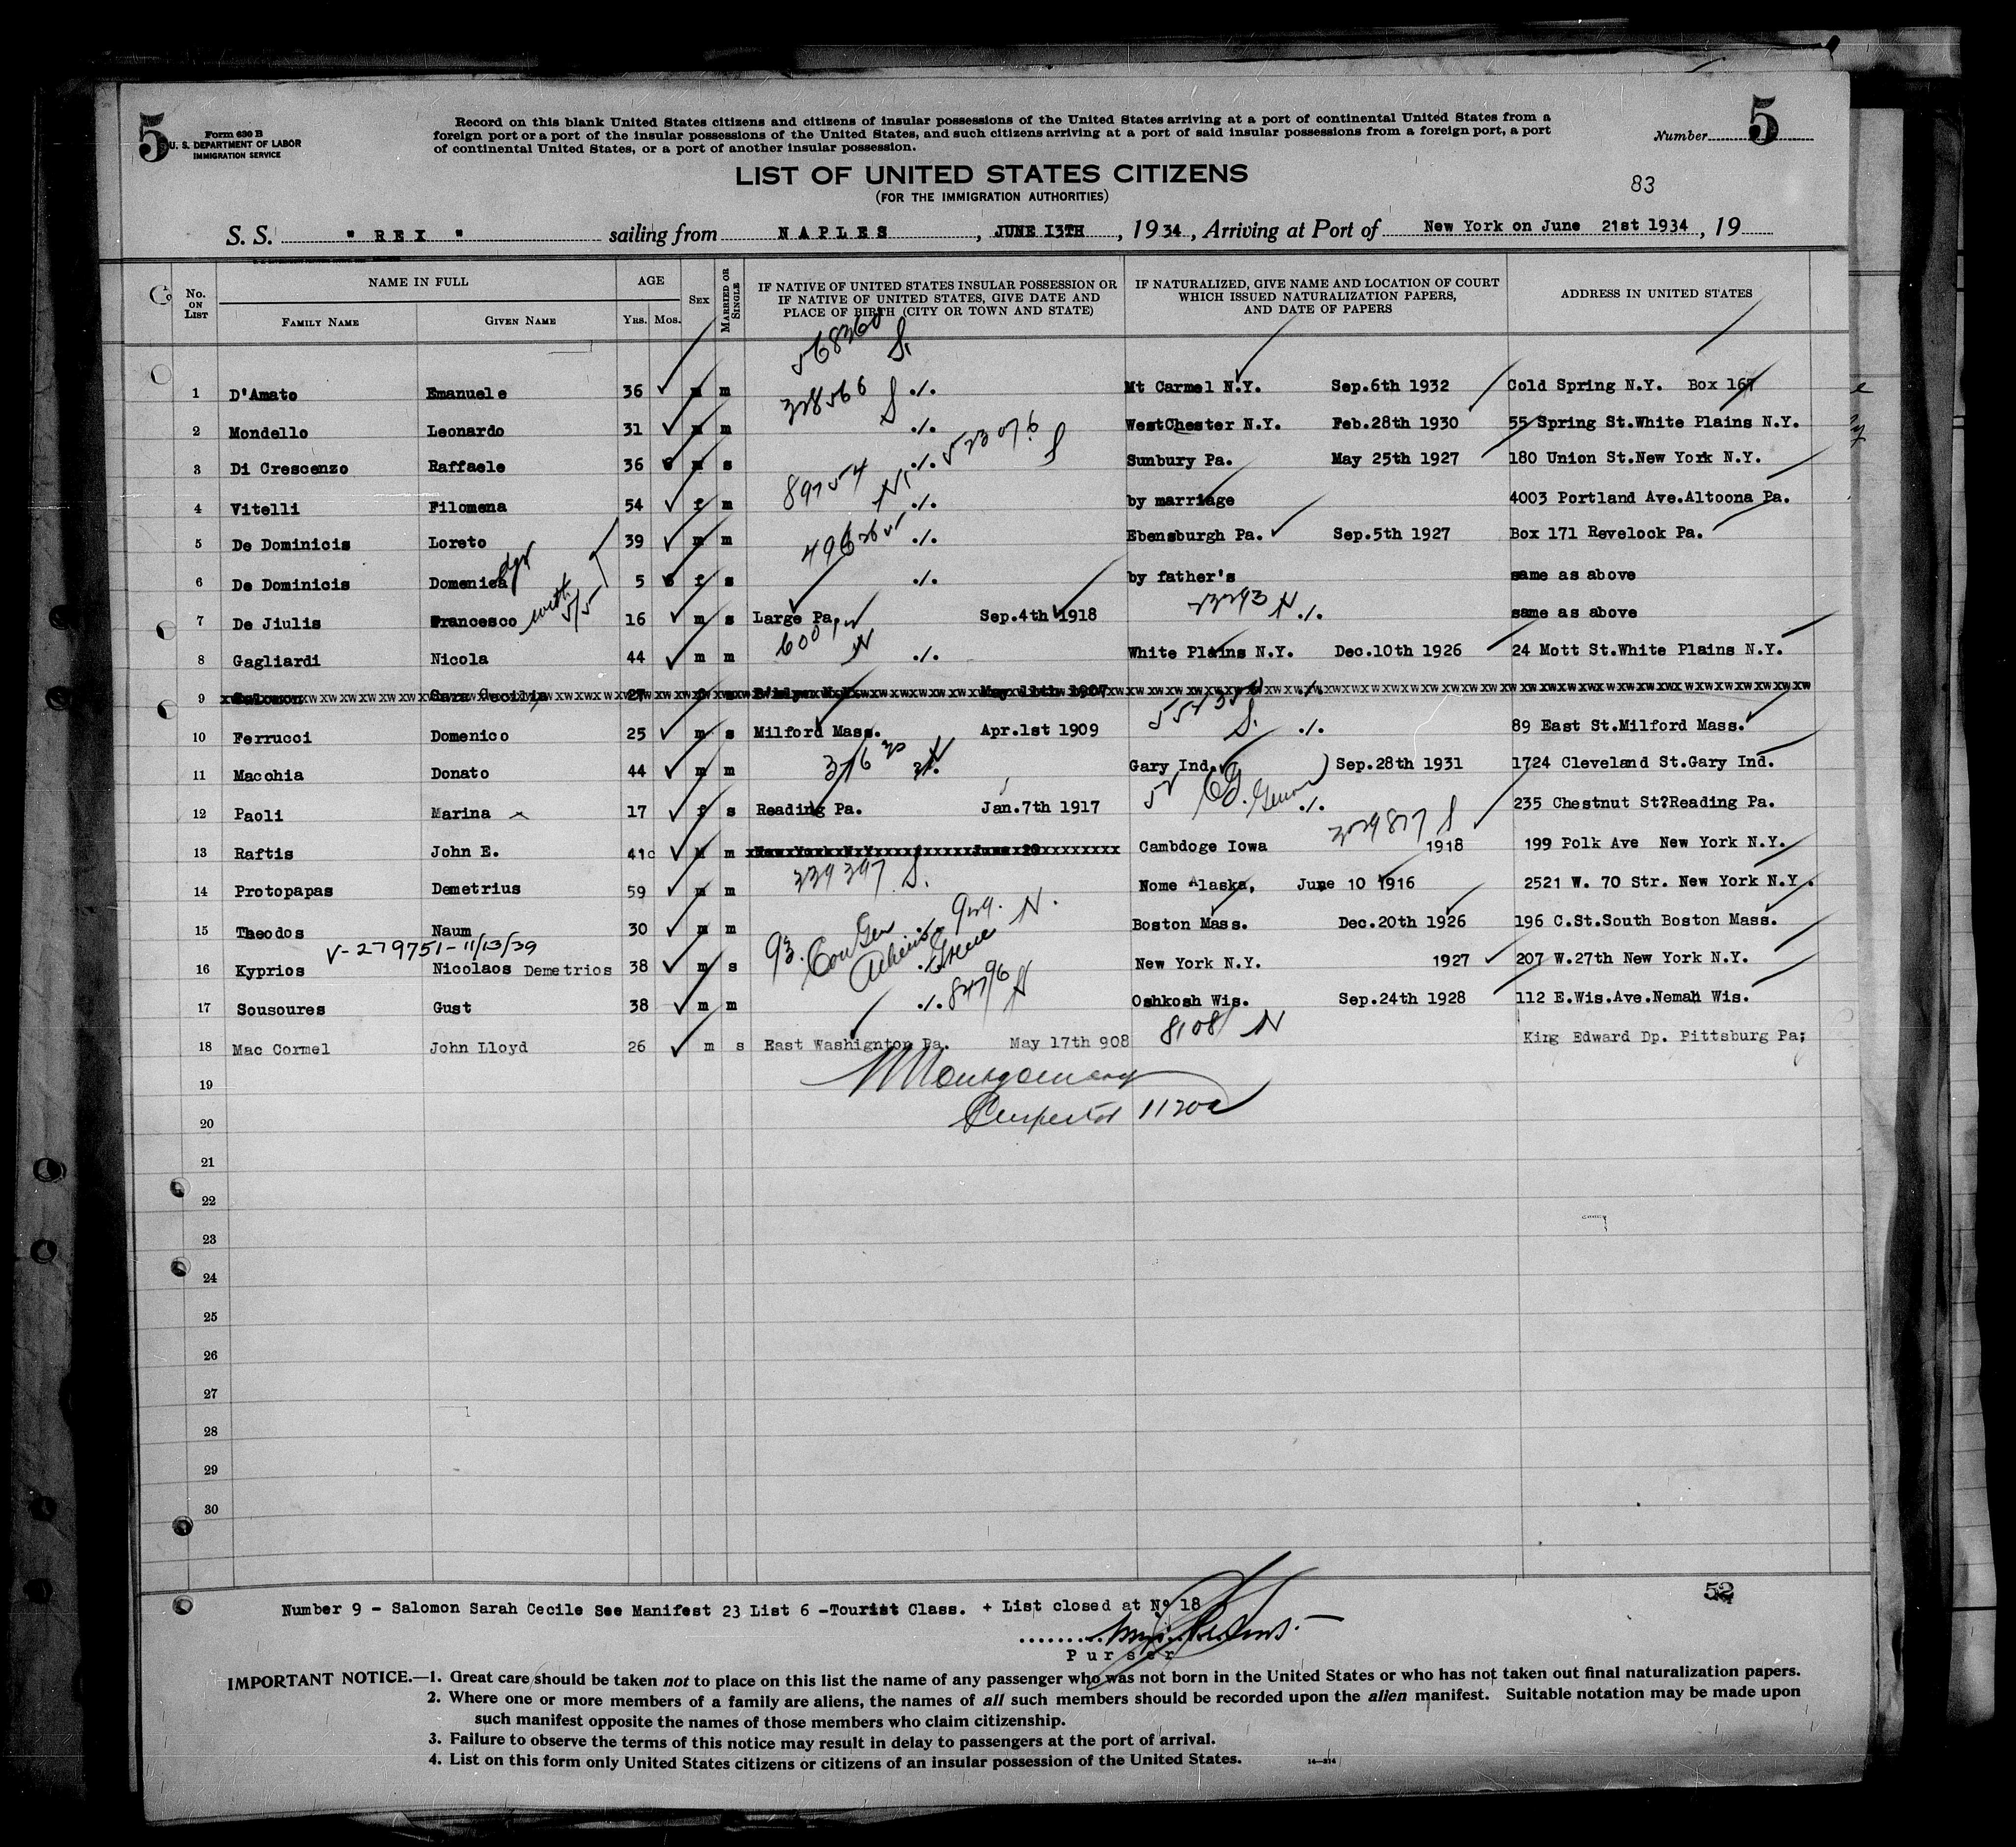 5
Form 630 B
U. S. DEPARTMENT OF LABOR
IMMIGRATION SERVICE
Record on this blank United States citizens and citizens of insular possessions of the United States arriving at a port of continental United States from a
foreign port or a port of the insular possessions of the United States, and such citizens arriving at a port of said insular possessions from a foreign port, a port
of continental United States, or a port of another insular possession.
Number 5
LIST OF UNITED STATES CITIZENS
(FOR THE IMMIGRATION AUTHORITIES)
83
S. S. " REX " sailing from NAPLES, JUNE 13TH, 1934, Arriving at Port of New York on June 21st 1934, 19
No. ON LIST
NAME IN FULL
FAMILY NAME GIVEN NAME
AGE
YRS. MOS.
SEX
MARRIED OR SINGLE
IF NATIVE OF UNITED STATES INSULAR POSSESSION OR
IF NATIVE OF UNITED STATES, GIVE DATE AND
PLACE OF BIRTH (CITY OR TOWN AND STATE)
IF NATURALIZED, GIVE NAME AND LOCATION OF COURT
WHICH ISSUED NATURALIZATION PAPERS,
AND DATE OF PAPERS
ADDRESS IN UNITED STATES
568360 S.
1 D'Amato Emanuele 36 m m ./. Mt Carmel N.Y. Sep.6th 1932 Cold Spring N.Y. Box 167
328566 S
2 Mondello Leonardo 31 m m ./. WestChester N.Y. Feb.28th 1930 55 Spring St.White Plains N.Y.
3 Di Crescenzo Raffaele 36 m s ./. 523076 S Sunbury Pa. May 25th 1927 180 Union St.New York N.Y.
89754 N
4 Vitelli Filomena 54 f m ./. by marriage 4003 Portland Ave.Altoona Pa.
5 De Dominicis Loreto 39 m m ./. Ebensburgh Pa. Sep.5th 1927 Box 171 Revelock Pa.
6 De Dominicis Domenica 5 f s ./. by father's same as above
with 5/5
7 De Jiulis Francesco 16 m s Large Pa. Sep.4th 1918 23293 N ./. same as above
8 Gagliardi Nicola 44 m m ./. White Plains N.Y. Dec.10th 1926 24 Mott St.White Plains N.Y.
9 Salomon Sara Cecilia 27 f s B'klyn N.Y. May 11th 1907
10 Ferrucci Domenico 25 m s Milford Mass. Apr.1st 1909 S. ./. 89 East St.Milford Mass.
11 Macchia Donato 44 m m Gary Ind. Sep.28th 1931 1724 Cleveland St.Gary Ind.
12 Paoli Marina 17 f s Reading Pa. Jan.7th 1917 ./. 235 Chestnut St?Reading Pa.
13 Raftis John E. 41 M m New York N.Y. June 20 Cambdoge Iowa 1918 199 Polk Ave New York N.Y.
339397 S.
14 Protopapas Demetrius 59 m m Nome Alaska, June 10 1916 2521 W. 70 Str. New York N.Y.
15 Theodos Naum 30 m m Boston Mass. Dec.20th 1926 196 C.St.South Boston Mass.
V-279751-11/13/39
16 Kyprios Nicolaos Demetrios 38 m s New York N.Y. 1927 207 W.27th New York N.Y.
17 Sousoures Gust 38 m m ./. 84796 N Oshkosh Wis. Sep.24th 1928 112 E.Wis.Ave.Nemah Wis.
8108 N
18 Mac Cormel John Lloyd 26 m s East Washignton Pa. May 17th 908 King Edward Dp. Pittsburg Pa;
19
Montgomery
20
21
22
23
24
25
26
27
28
29
30
52
Number 9 - Salomon Sarah Cecile See Manifest 23 List 6 -Tourist Class. + List closed at Nº 18
Purser
IMPORTANT NOTICE.—1. Great care should be taken not to place on this list the name of any passenger who was not born in the United States or who has not taken out final naturalization papers.
2. Where one or more members of a family are aliens, the names of all such members should be recorded upon the alien manifest. Suitable notation may be made upon
such manifest opposite the names of those members who claim citizenship.
3. Failure to observe the terms of this notice may result in delay to passengers at the port of arrival.
4. List on this form only United States citizens or citizens of an insular possession of the United States.
14—214